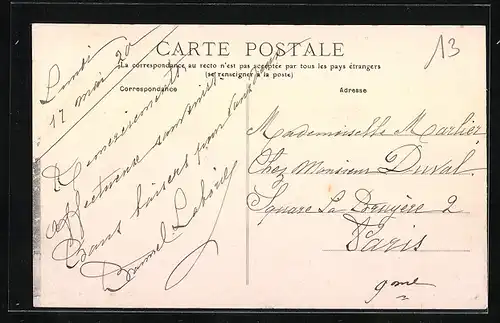 CARTE POSTALE
La correspondance au recto n'est pas acceptée par tous les pays étrangers
(se renseigner à la poste)
Correspondance
Adresse
13
Lundi
17 mai 20
Remerciements
affectueux souvenirs
Bons baisers pour
Mademoiselle Marlier
Chez Monsieur Duval
Square La Bruyère 2
Paris
9me